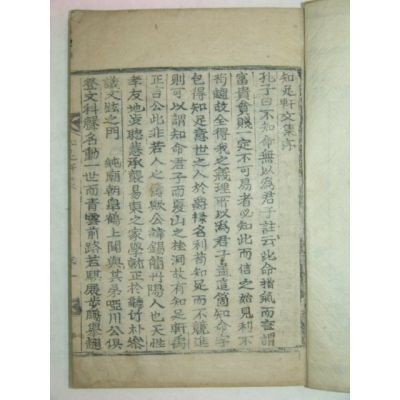 知足軒文集序
孔子曰不知命無以爲君子註云此命指氣而言謂
富貴貧賤一定不可易者必知此而信之始見利不
苟趨故全得我之義理所以爲君子盖這箇知命字
包得知足意世之人於爵祿名利苟知足而不競進
則可以謂知命君子而夏山之桂洞故有知足軒禹
正言公此非若人之儔歟公諱錫龍丹陽人也天性
孝友地姿聰慧承襲易東之家學就正於聽竹朴
議文之門 純廟朝皐鶴上聞與其弟啞川公俱
登文科聲名動一世而青雲前路若騏展步鵬擧翮